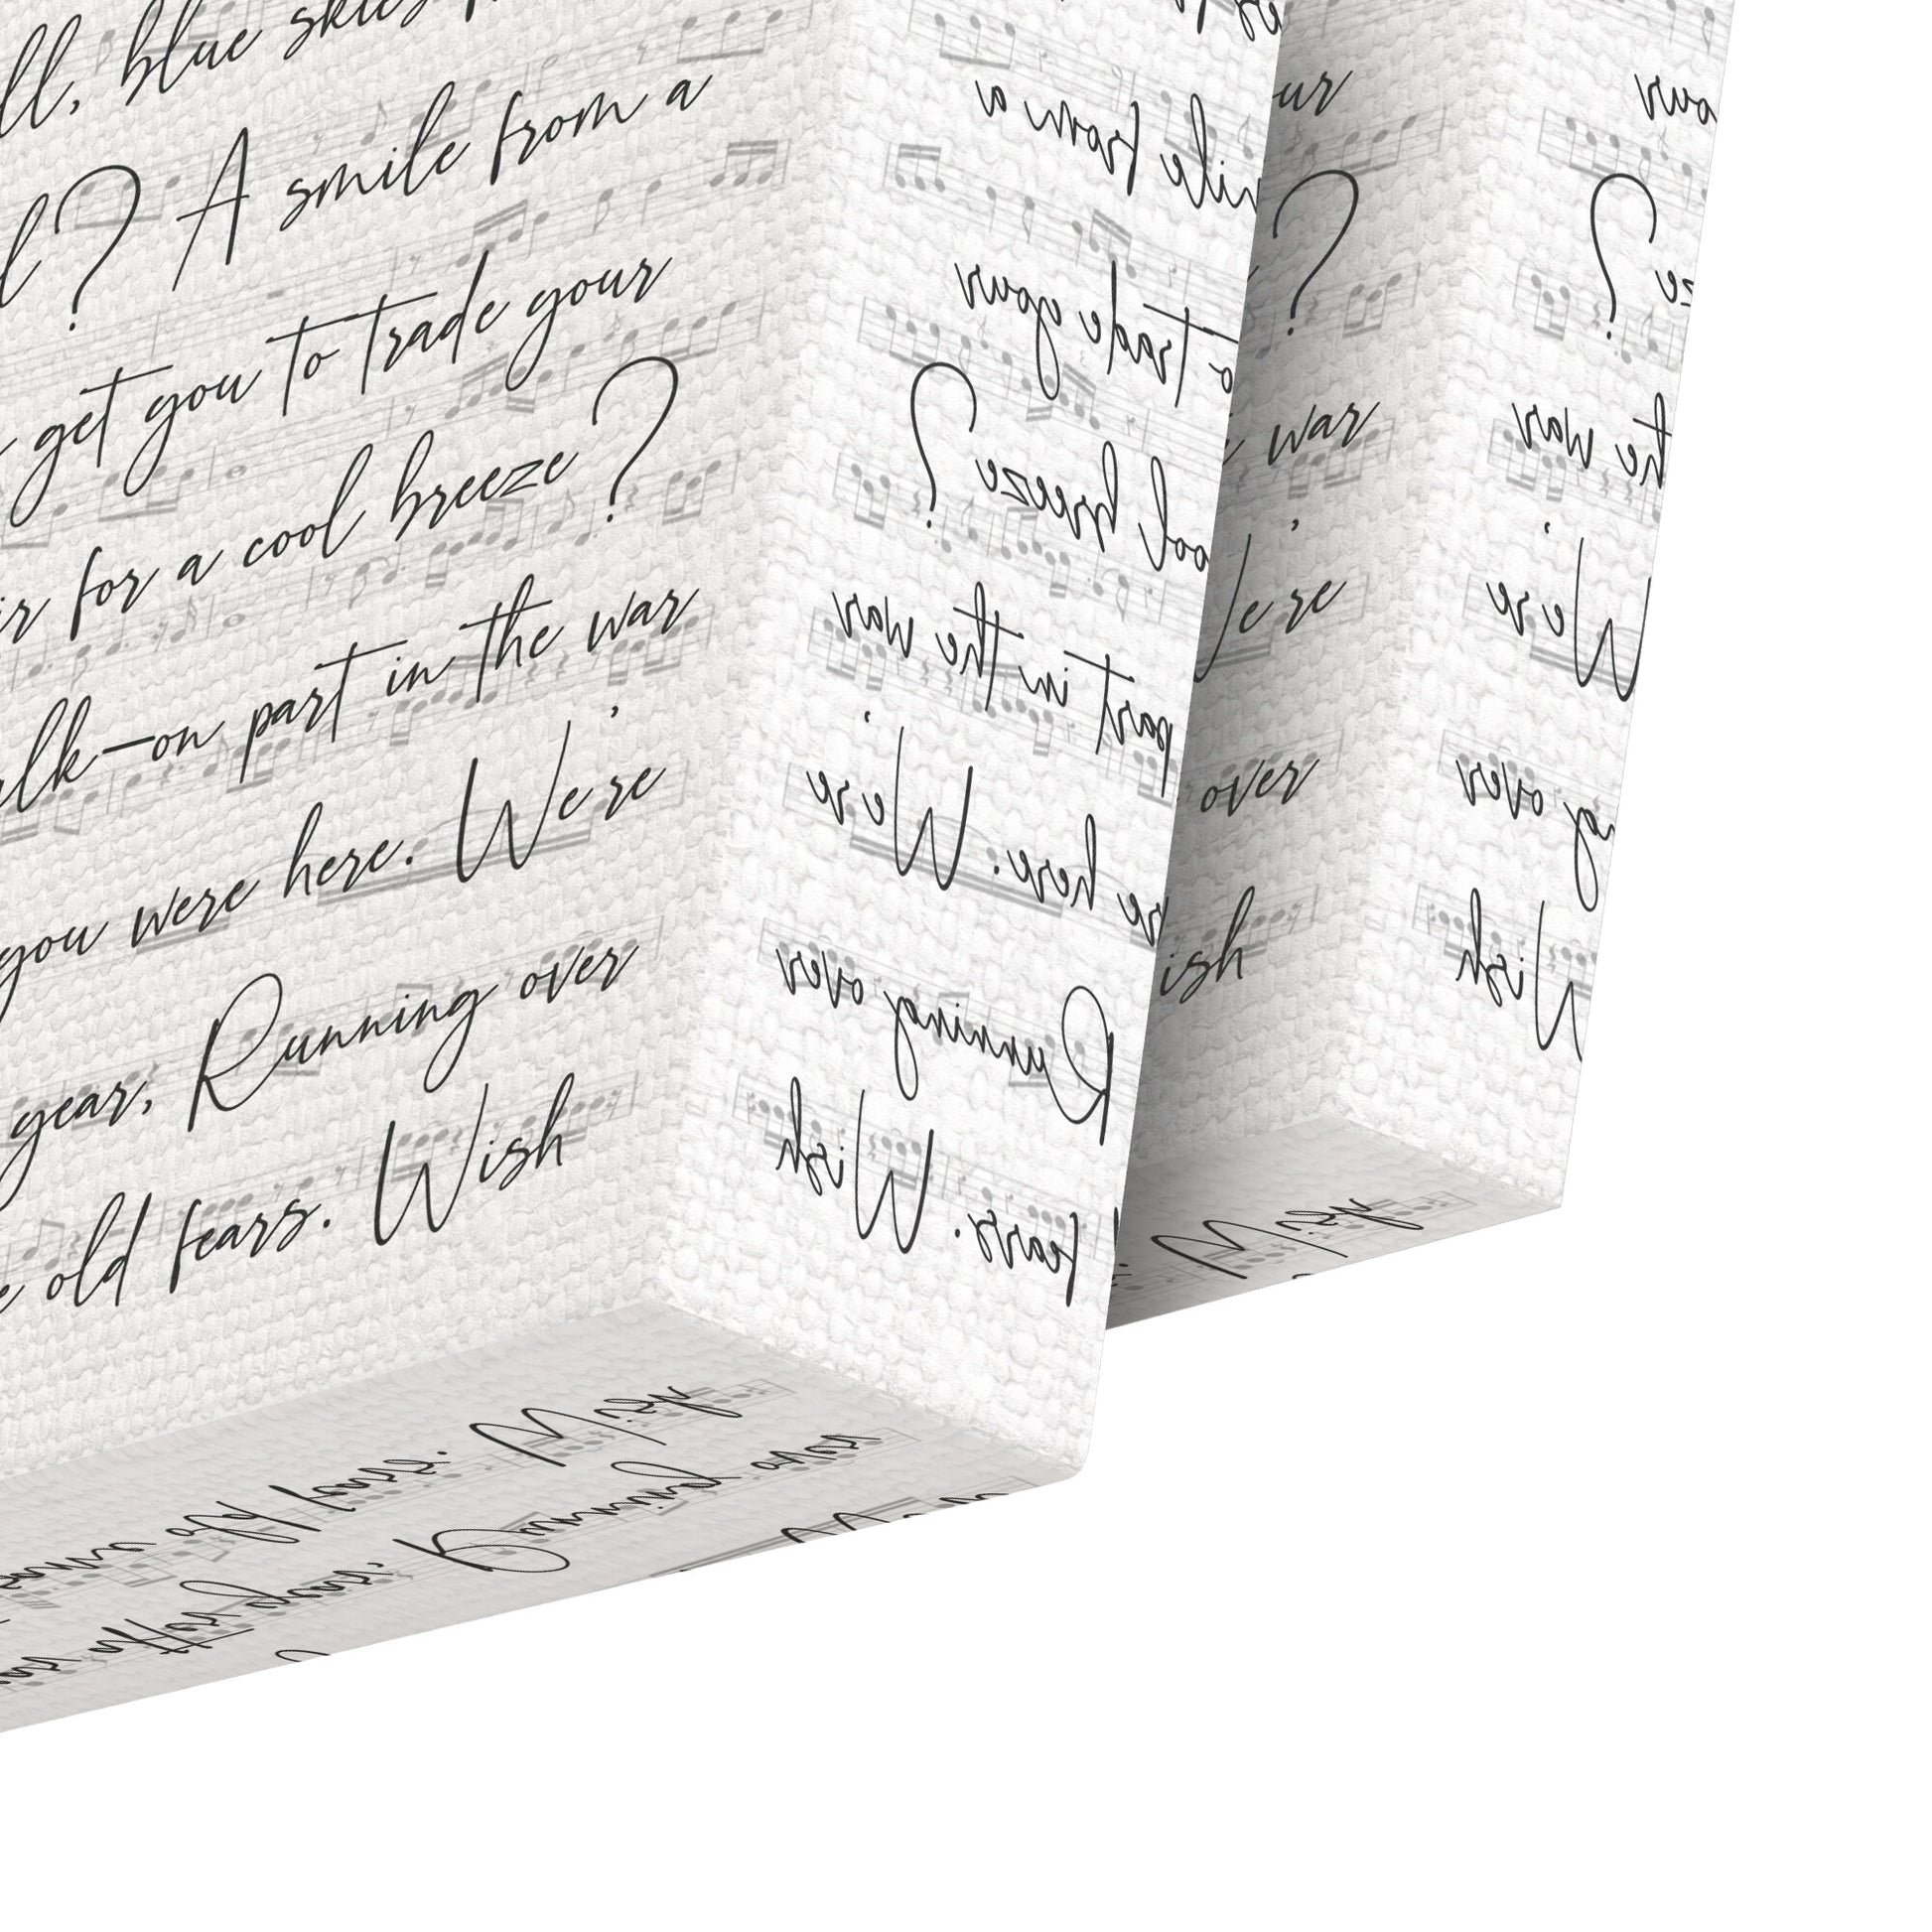 ll, blue skies
? A smile from a
get you to trade your
for a cool breeze?
lk-on part in the war
you were here. We're
year, Running over
old fears. Wish
a
ile from a
o trade your
ool breeze?
part in the war
re here. We're
Running over
fears. Wish
ur
?
war
e're
over
ish
our
ze?
he war
We're
g over
Wish
old fears. Wish
year, Running over
Wish